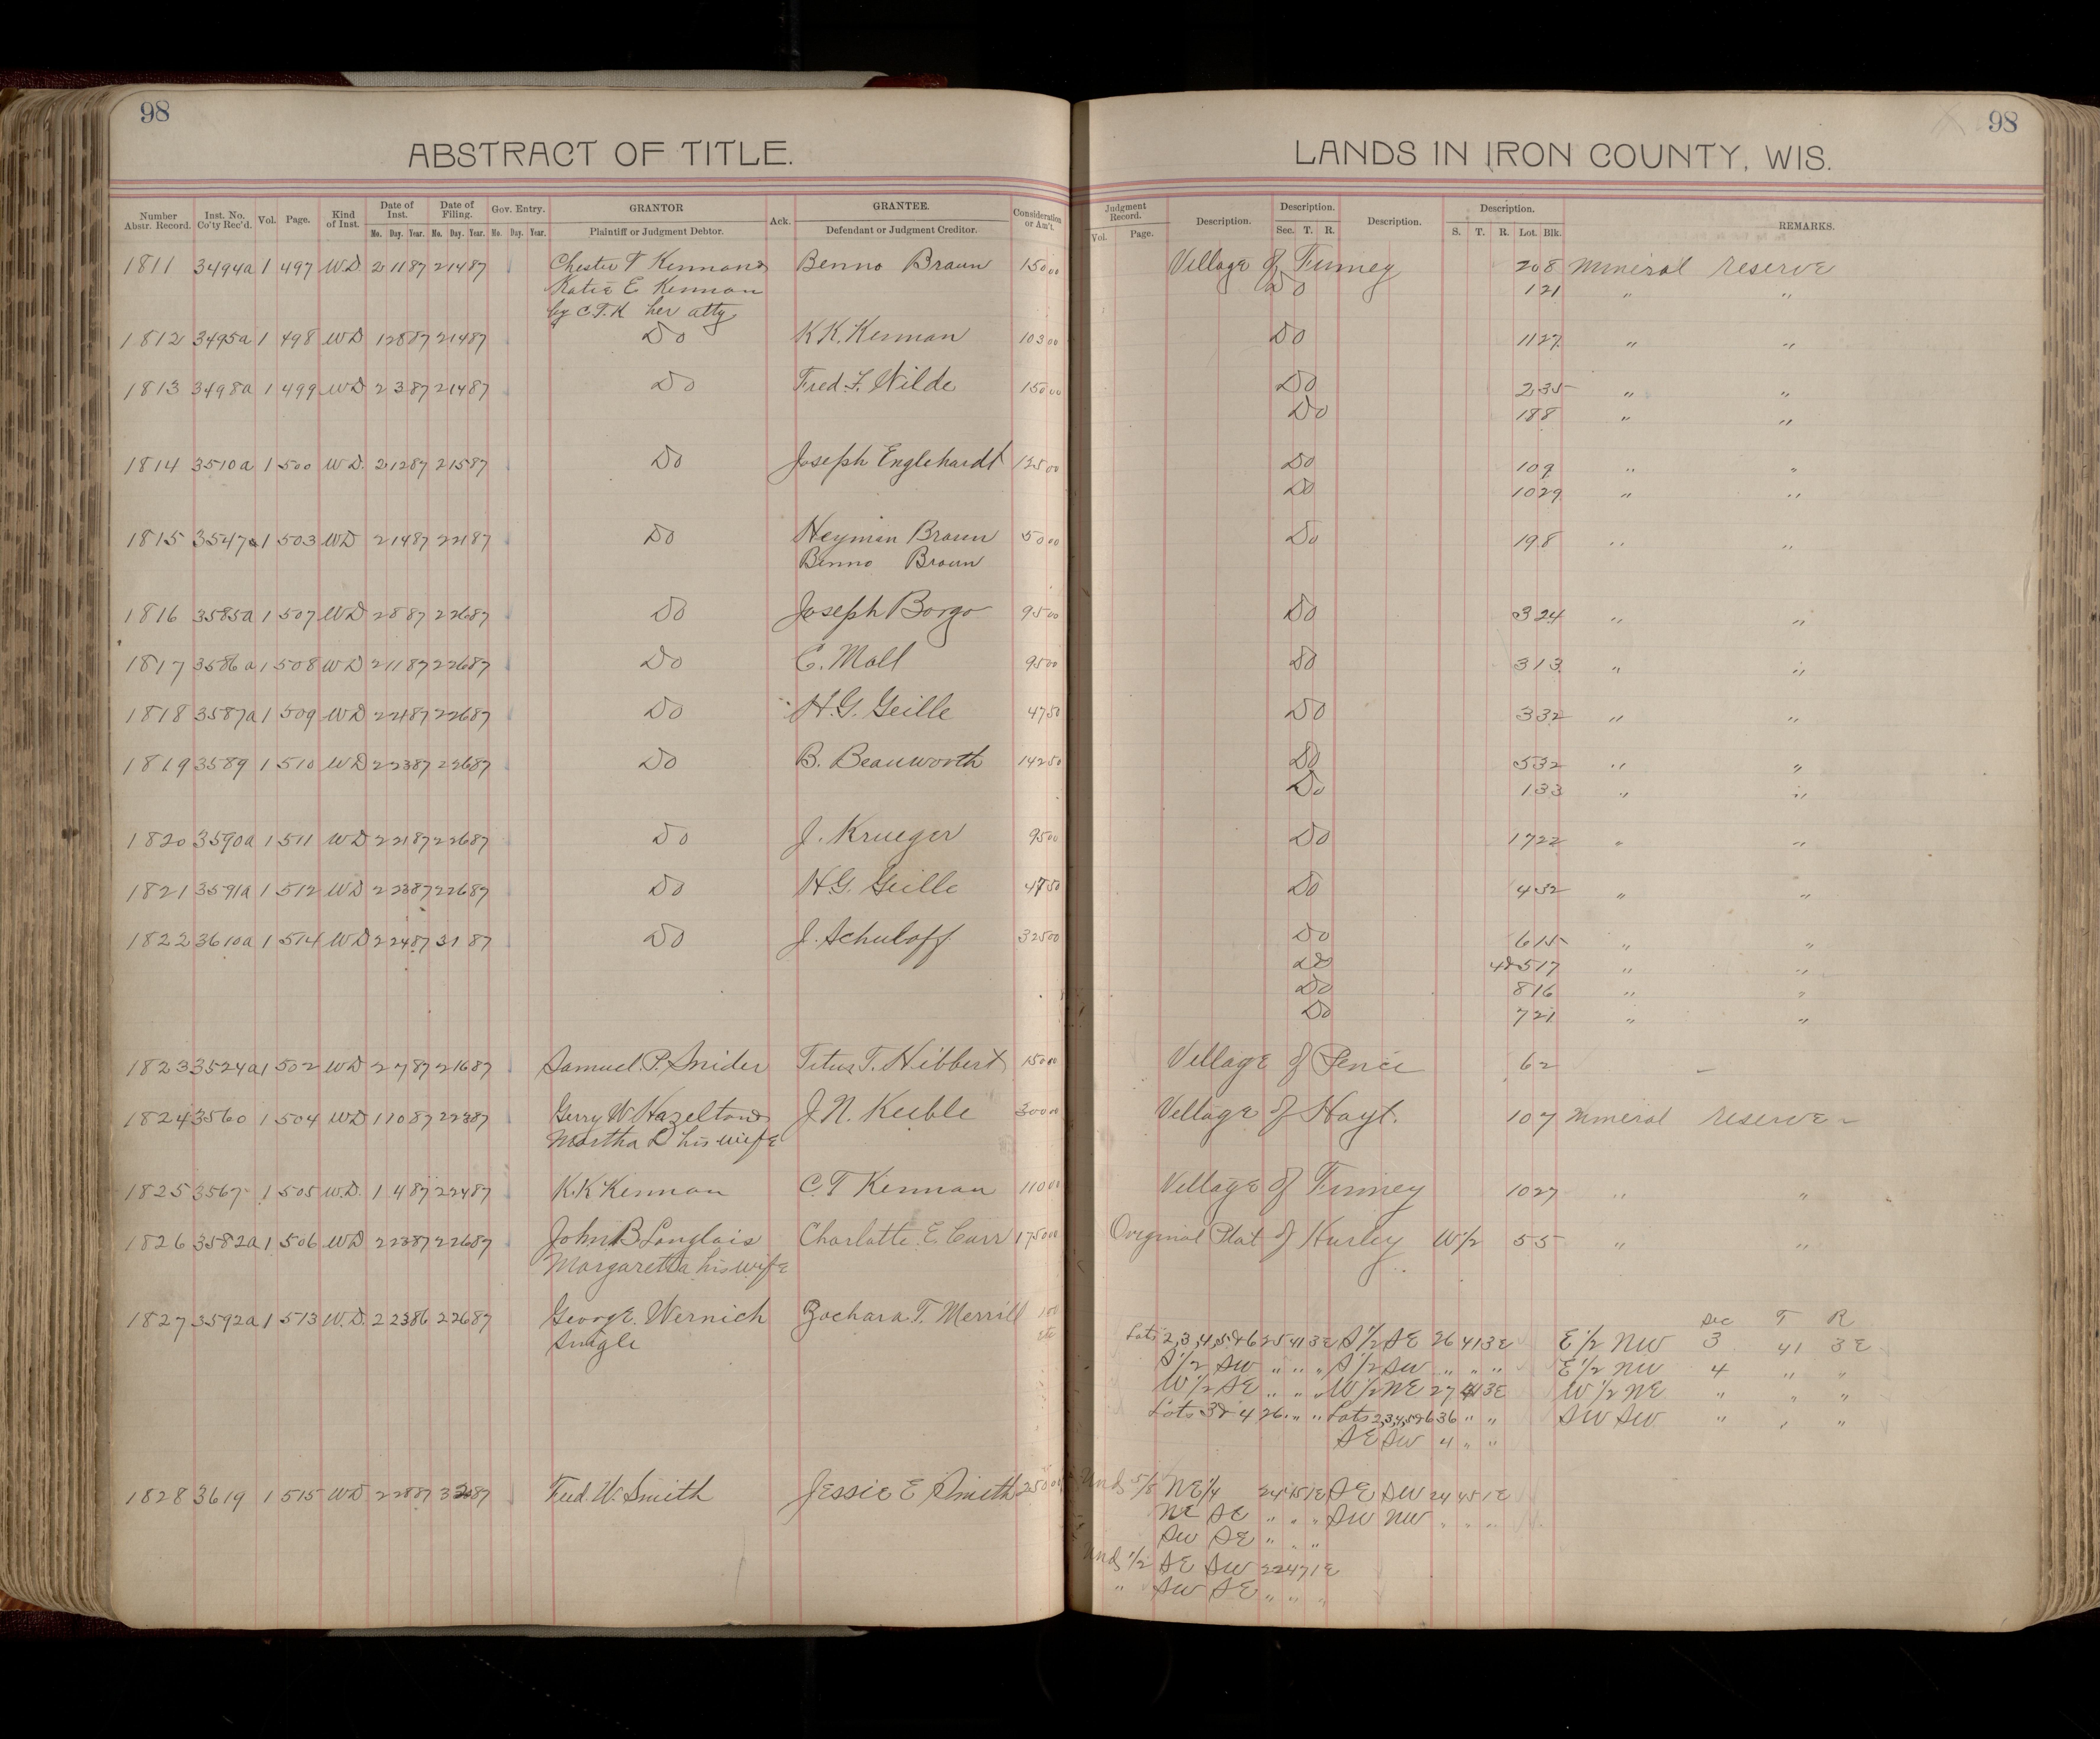 98
ABSTRACT OF TITLE.
Number Abstr. Record. Inst. No. Co'ty Rec'd. Vol. Page. Kind of Inst. Date of Inst. Mo. Day. Year. Date of Filing. Mo. Day. Year. Gov. Entry. Mo. Day. Year. GRANTOR Plaintiff or Judgment Debtor. Ack. GRANTEE. Defendant or Judgment Creditor. Consideration or Am't.
1811 3494a 1 497 WD 2 11 87 2 14 87 Chester T Kennan & Benno Braun 150 00
Katie E Kennan
by C.T.K her atty
1812 3495a 1 498 WD 1 28 87 2 14 87 Do K K. Kennan 103 00
1813 3498a 1 499 WD 2 3 87 2 14 87 Do Fred. F. Wilde 150 00
1814 3510a 1 500 WD. 2 12 87 2 15 87 Do Joseph Englehardt 125 00
1815 3547a 1 503 WD 2 14 87 2 21 87 Do Heyman Braun 50 00
Benno Braun
1816 3585a 1 507 WD 2 8 87 2 26 87 Do Joseph Borgo 95 00
1817 3586a 1 508 WD 2 11 87 2 26 87 Do C. Moll 95 00
1818 3587a 1 509 WD 2 24 87 2 26 87 Do H.G. Geille 47 50
1819 3589 1 510 WD 2 23 87 2 26 87 Do B. Beauworth 142 50
1820 3590a 1 511 WD 2 21 87 2 26 87 Do J. Krueger 95 00
1821 3591a 1 512 WD 2 23 87 2 26 87 Do H.G. Geille 47 50
1822 3610a 1 514 WD 2 24 87 3 1 87 Do J. Schuloff 325 00
1823 3524a 1 502 WD 2 7 87 2 16 87 Samuel P. Snider Titus T. Hibbert 150 00
1824 3560 1 504 WD 1 10 87 2 23 87 Gerry W. Hazelton & J N. Keeble 300 00
Martha L his wife
1825 3567 1 505 W.D. 1 4 87 2 24 87 K.K Kennan C.T Kennan 110 00
1826 3582a 1 506 WD 2 23 87 2 26 87 John B Langlais Charlotte E Carr 1750 00
Margaretta his wife
1827 3592a 1 513 W.D. 2 23 86 2 26 87 George. Wernich Zachara T. Merrill 1 00
Single etc
1828 3619 1 515 WD 2 28 87 3 2 87 Fred W. Smith Jessie E Smith 250 00
98
LANDS IN IRON COUNTY, WIS.
Judgment Record. Vol. Page. Description. Description. Sec. T. R. Description. Description. S. T. R. Lot. Blk. REMARKS.
Village of Finney 20 8 Mineral reserve
Do 12 1 " "
Do 11 27 " "
Do 2 35 " "
Do 18 8 " "
Do 10 9 " "
Do 10 29 " "
Do 19 8 " "
Do 3 24 " "
Do 3 13 " "
Do 3 32 " "
Do 5 32 " "
Do 1 33 " "
Do 17 22 " "
Do 4 32 " "
Do 6 15 " "
Do 4 & 5 17 " "
Do 8 16 " "
Do 7 21 " "
Village of Pence 6 2
Village of Hoyt. 10 7 Mineral reserve
Village of Finney 10 27 " "
Original Plat of Hurley W 1/2 5 5 " "
Sec T R
Lots 2,3,4,5 & 6 25 41 3 E S 1/2 SE 26 41 3 E E 1/2 NW 3 41 3 E
S 1/2 SW " " " S 1/2 SW " " " E 1/2 NW 4 " "
W 1/2 SE " " " W 1/2 NE 27 41 3 E W 1/2 NE " " "
Lots 3 & 4 26 " " Lots 2,3,4,5 & 6 36 " " SW SW " " "
SE SW 4 " "
Und 5/8 NE 1/4 24 45 1 E SE SW 24 45 1 E
NE SE " " " SW NW " " "
SW SE " " "
Und 1/2 SE SW 22 47 1 E
" SW SE " " "